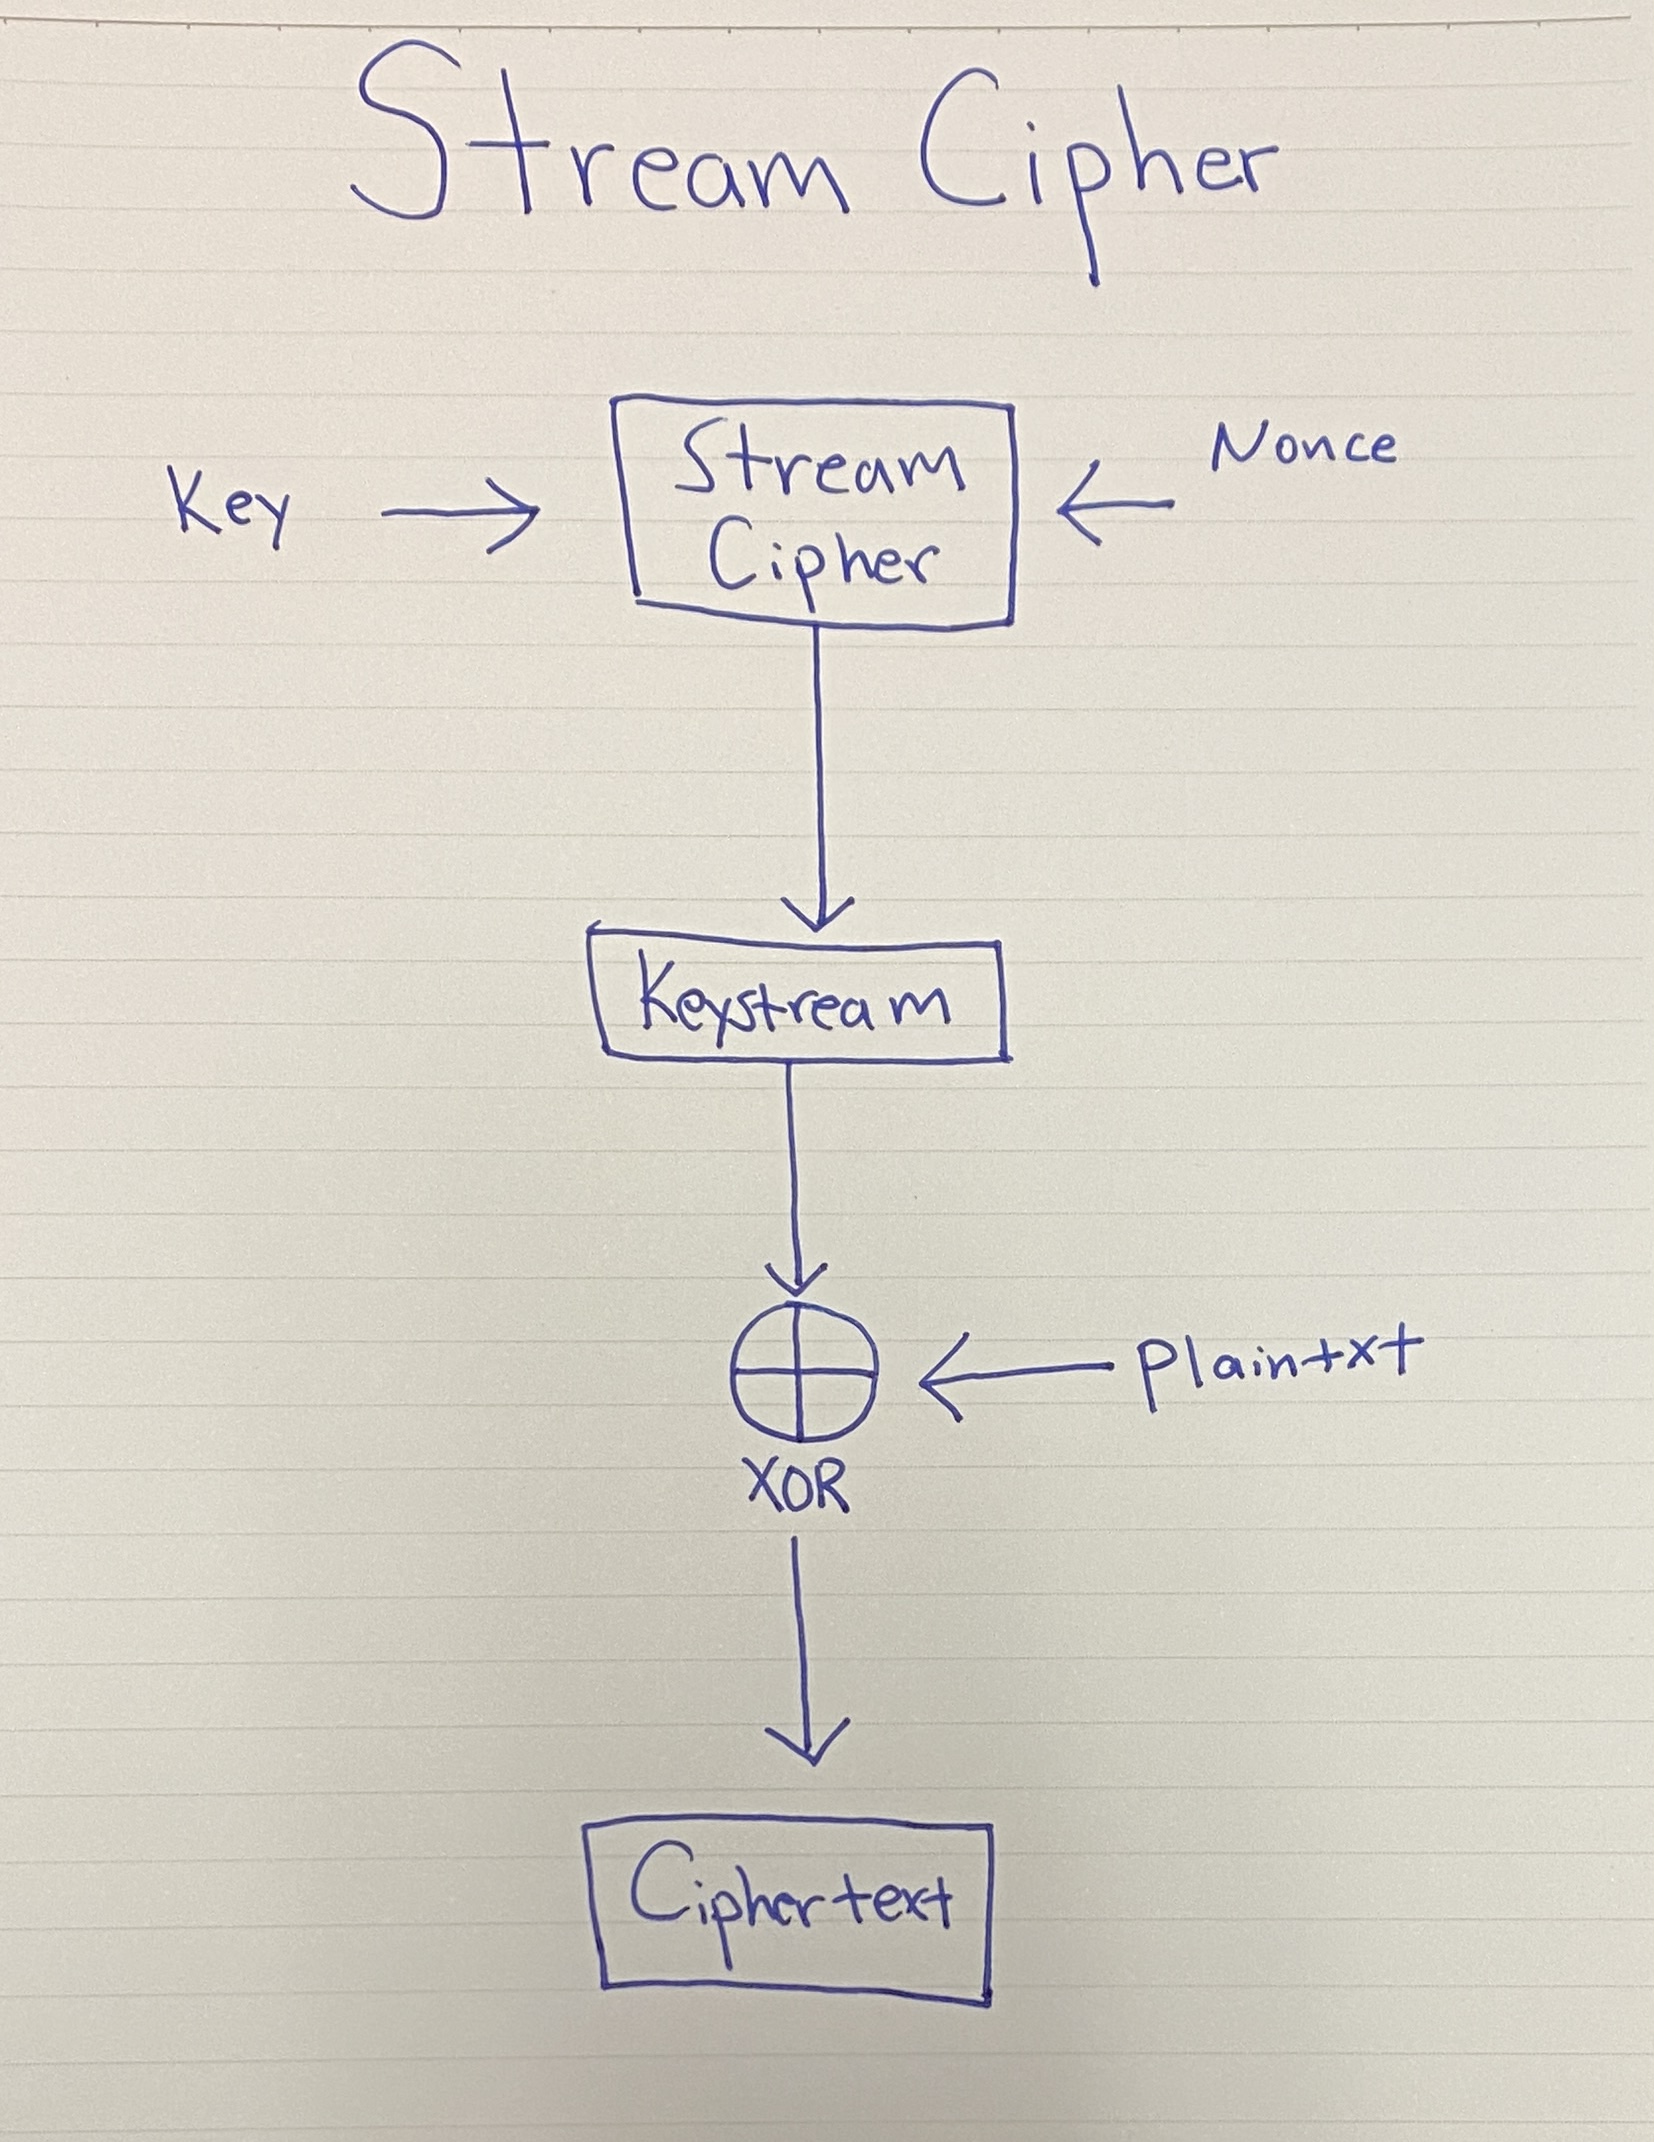 Stream Cipher
Key
Stream
Cipher
Nonce
Keystream
plaintxt
XOR
Ciphertext